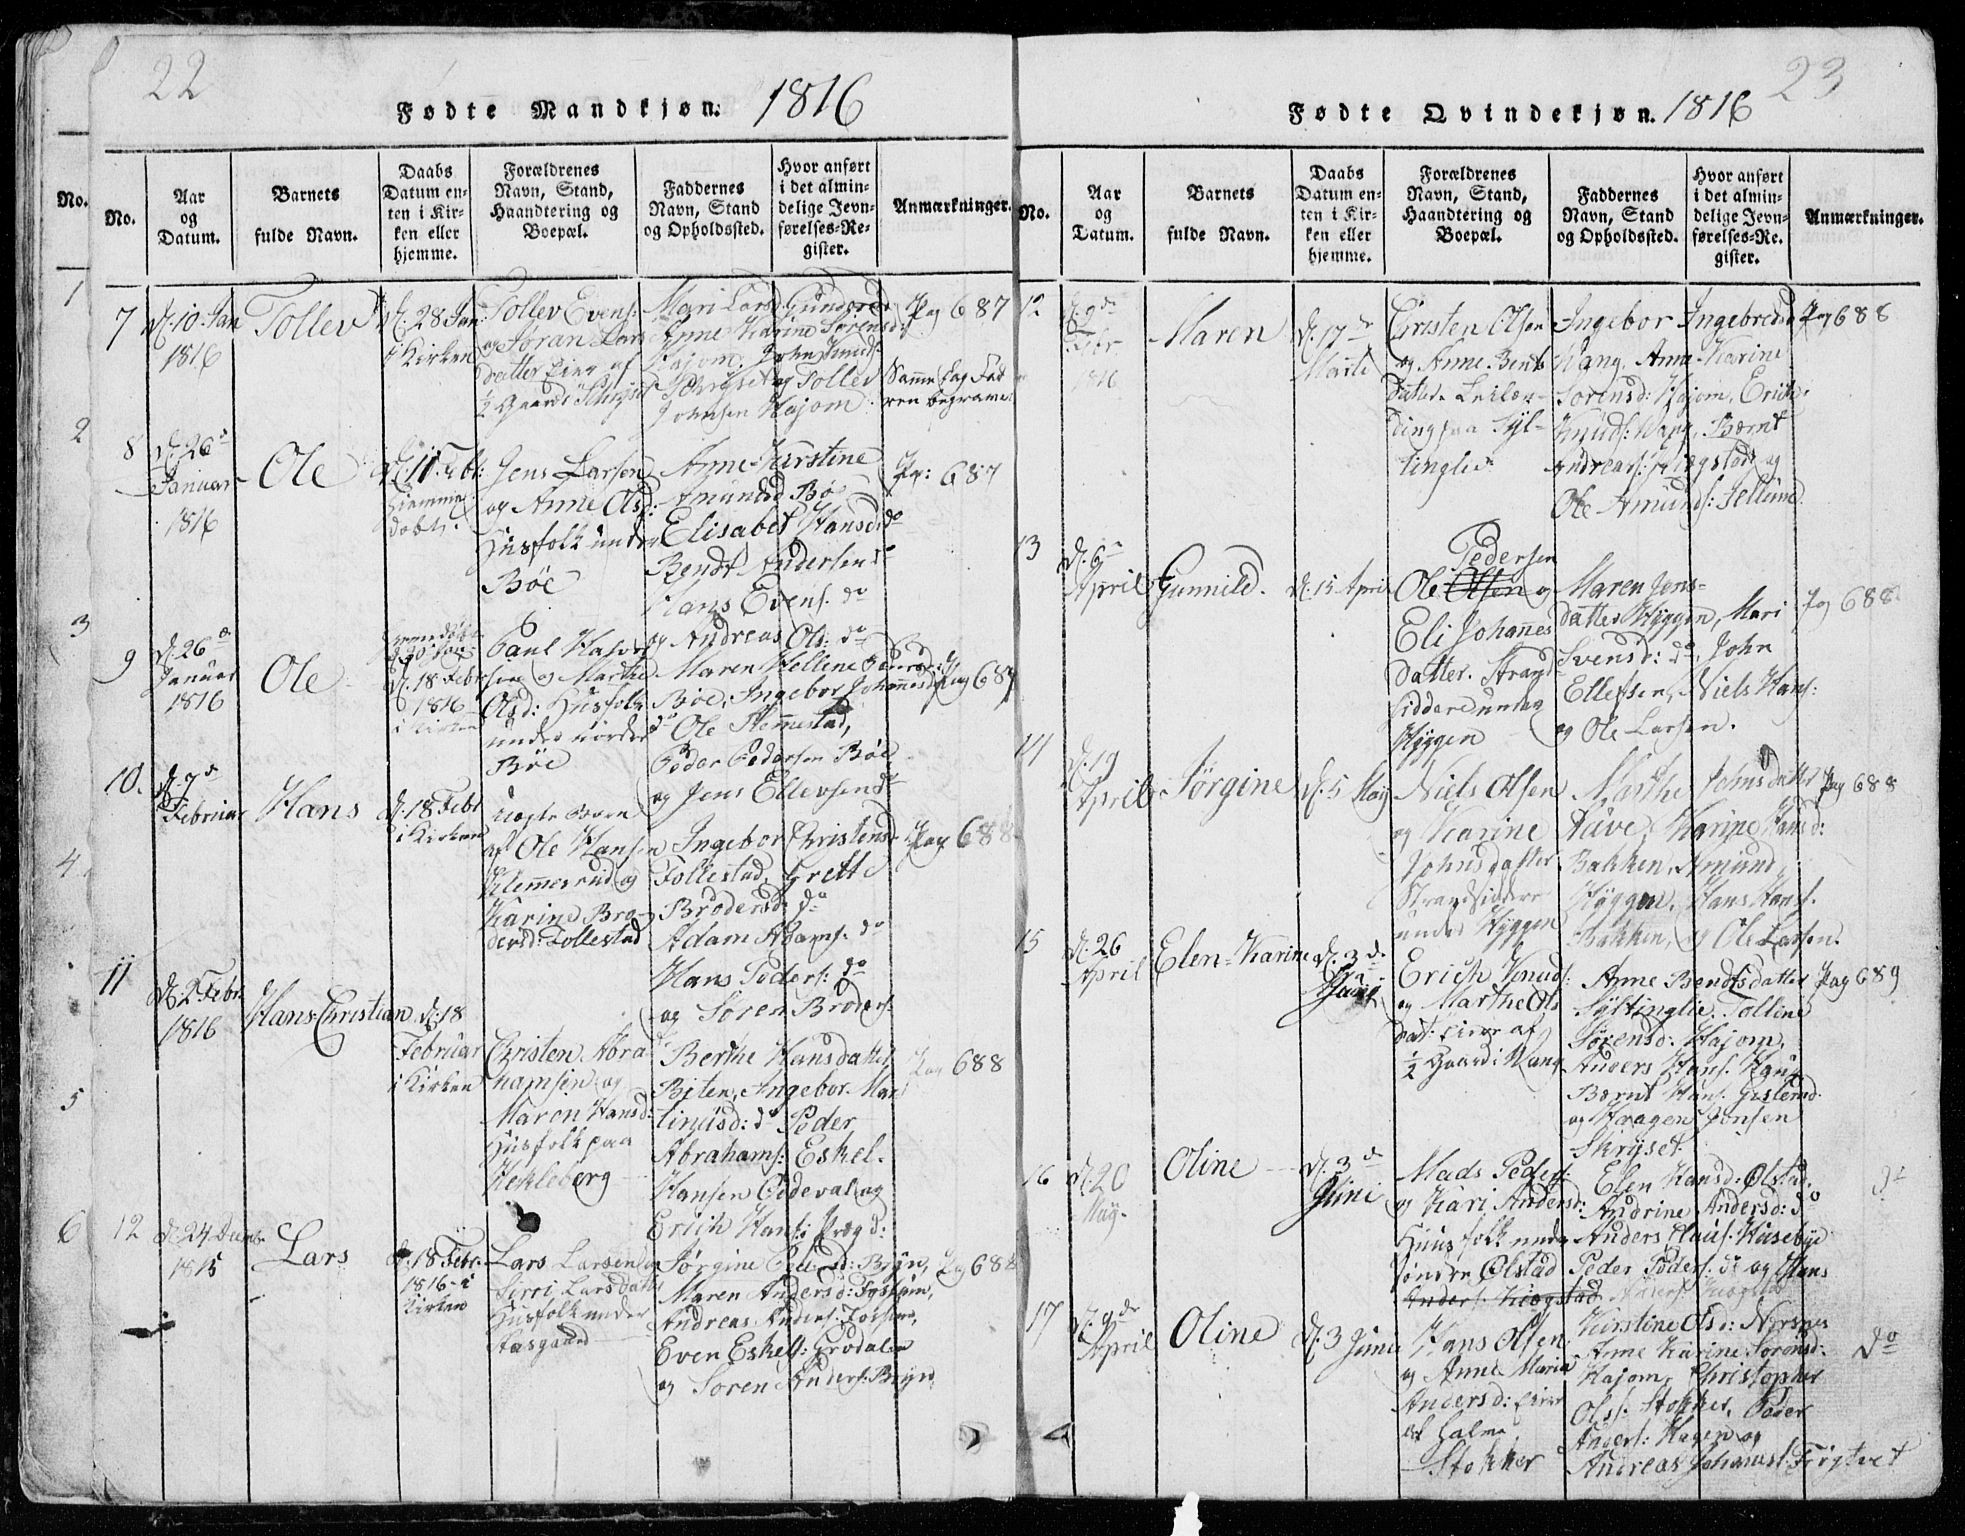 22
Fødte Mandkjøn. 1816
No.
No.
Aar og Datum.
Barnets fulde Navn.
Daabs Datum enten i Kirken eller hjemme.
Forældrenes Navn, Stand, Haandtering og Boepæl.
Faddernes Navn, Stand og Opholdssted.
Hvor anført i det almindelige Jevnførelses-Register.
Anmærkninger.
1
2
3
4
5
6
7
d. 10. Jan
1816
Tollev
d. 28 Jan:
i Kirken
Tollev Evens:
og Joran Lars
datter Eier af
1/2 Gaard
Mari Larsd:
Anne Karine Sørensd:
Hajom, John Knuds
og Tollev
Johnsen Hajom
Pag 687
Samme Dag Fad
ren begravet
8
d. 26 d
Januar
1816
Ole
d. 11. Febr:
hjemme
døbt.
Jens Larsen
og Anne Olsd:
Husfolk under
Böe
Anne Kirstine
Amundsd Böe
Elisabet Hansd: do
Bendt Andersen do
Hans Evens. do
og Andreas Ols: do
Pag: 687
9
d. 26 d
Januar
1816
Ole
d. 18 Febr
1816
i Kirken
Paul Halvor
sen og Marthe
Olsd: Husfolk
under nordre
Böe
Maren Hellene
Böe, Ingebor Johannesd:
do Ole Hemmestad,
Peder Pedersen Böe
og Jens Ellevsen do
Pag 687
10.
d. 7 d
Februar
Hans
d. 18 Febr
i Kirken
uægte Barn
af Ole Hansen
Klemmesrud og
Karine Bro-
dersd: Follestad
Ingebor Christensd:
Follestad, Grette
Brodersd: do
Adam Adams. do
Hans Peders: do
og Soren Broders:
Pag 688
11
d. 2 Febr.
1816
Hans Christian
d. 18
Februar
i Kirken
Christen Abra
hamsen og
Maren Hansd:
Husfolk paa
Hekleberg
Berthe Hansdatter
Bjten, Ingebor Mar
tinusd: do Peder
Abrahams: Eskel-
Hansen Ødeval og
Erich Hans:
Pag 688
12
d. 24 Decmb.
1815
Lars
d. 18 Febr.
1816 i
Kirken
Lars Larsen og
Sirri Larsdatter
Husfolk under
Aasgaard
Jørgine Peders d: Bryn,
Maren Andersd:
Andreas Anders:
Even Eskels: Grodalen
og Soren Anders: Bryn
Pag 688
23
Fødte Qvindekjøn. 1816
No.
Aar og Datum.
Barnets fulde Navn.
Daabs Datum enten i Kirken eller hjemme.
Forældrenes Navn, Stand, Haandtering og Boepæl.
Faddernes Navn, Stand og Opholdssted.
Hvor anført i det almindelige Jevnførelses-Register.
Anmærkninger.
12
d. 9 de
Febr
1816
Maren
d. 17 de
Marti
Christen Olsen
og Anne Bents
datter Leilen-
ding paa Syl-
tinglie
Ingebor Ingebredsd:
Wang, Anne Karine
Sorensd: Hajom, Erich
Knuds: Wang, Bernt
Andreas: Kiøgstad og
Ole Amunds: Jellum
Pag 688
13
d. 6 te
April
Gunnild.
d. 15 April
Pedersen
Ole Olsen og
Eli Johannes
datter. Strand
siddere under
Hyggen
Maren Jens-
datter Hyggen, Mari
Svensd: do, John
Ellefsen, Niels Hans:
og Ole Larsen.
Pag 688
14
d. 19
April
Jørgine
d. 5 May
Niels Olsen
og Karine
Johnsdatter
Strandsiddere
under Hyggen
Marthe Johnsdatter
Rave, Karine Hansd:
Bakken, Amund
Hyggen, Hans Hans.
Bakken, og Ole Larsen.
Pag 688
15
d. 26
April
Elen Karine
d. 3 d.
Juni
Erich Knuds:
og Marthe Ols
dat: Eier af
1/2 Gaard: Wang
Anne Bendtsdatter
Syltinglie, Tolline
Sørensd: Hajom,
Anders Hans: Haug
Bernt Hans. Gislerud
og Haagen Jonsen
Skryset
Pag 689
16
d. 20
May.
Oline
d. 3 de
Juni
Mads Peders:
og Kari Andersd:
Huusfolk under
søndre Ølstad
Elen Hansd: Ølstad
Andrine Andersd: do
Anders Hans: Huseby
Peder Peders: do og Hans
Anders: Kiøgstad Anders: Kiøgstad
do
17
d. 9 de
April
Oline
d. 3 Juni
Hans Olsen
og Anne Maria
Andersd: Eier
af halve
Stokker
Kirstine Olsd: Nersnes
Anne Karine Sorensd:
Hajom, Christopher
Ols: Stokker, Peder
Anders: Hagen og
Andreas Johannes: Frøtvet
do